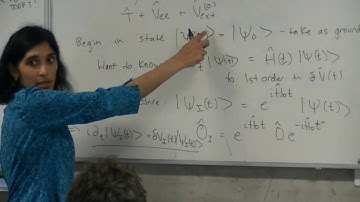 T̂ + V̂ee + V̂ext(0)
Begin in state |Ψ > = |Ψ0> - take as ground
Want to know |Ψ(t)> = Ĥ(t) |Ψ(t)>
to 1st order in δV(t)
|ΨI(t)> = e^iĤ0t |Ψ(t)>
∂t|ΨI(t)> = δVI(t)|ΨI(t)> ÔI = e^iĤ0t Ô e^-iĤ0t